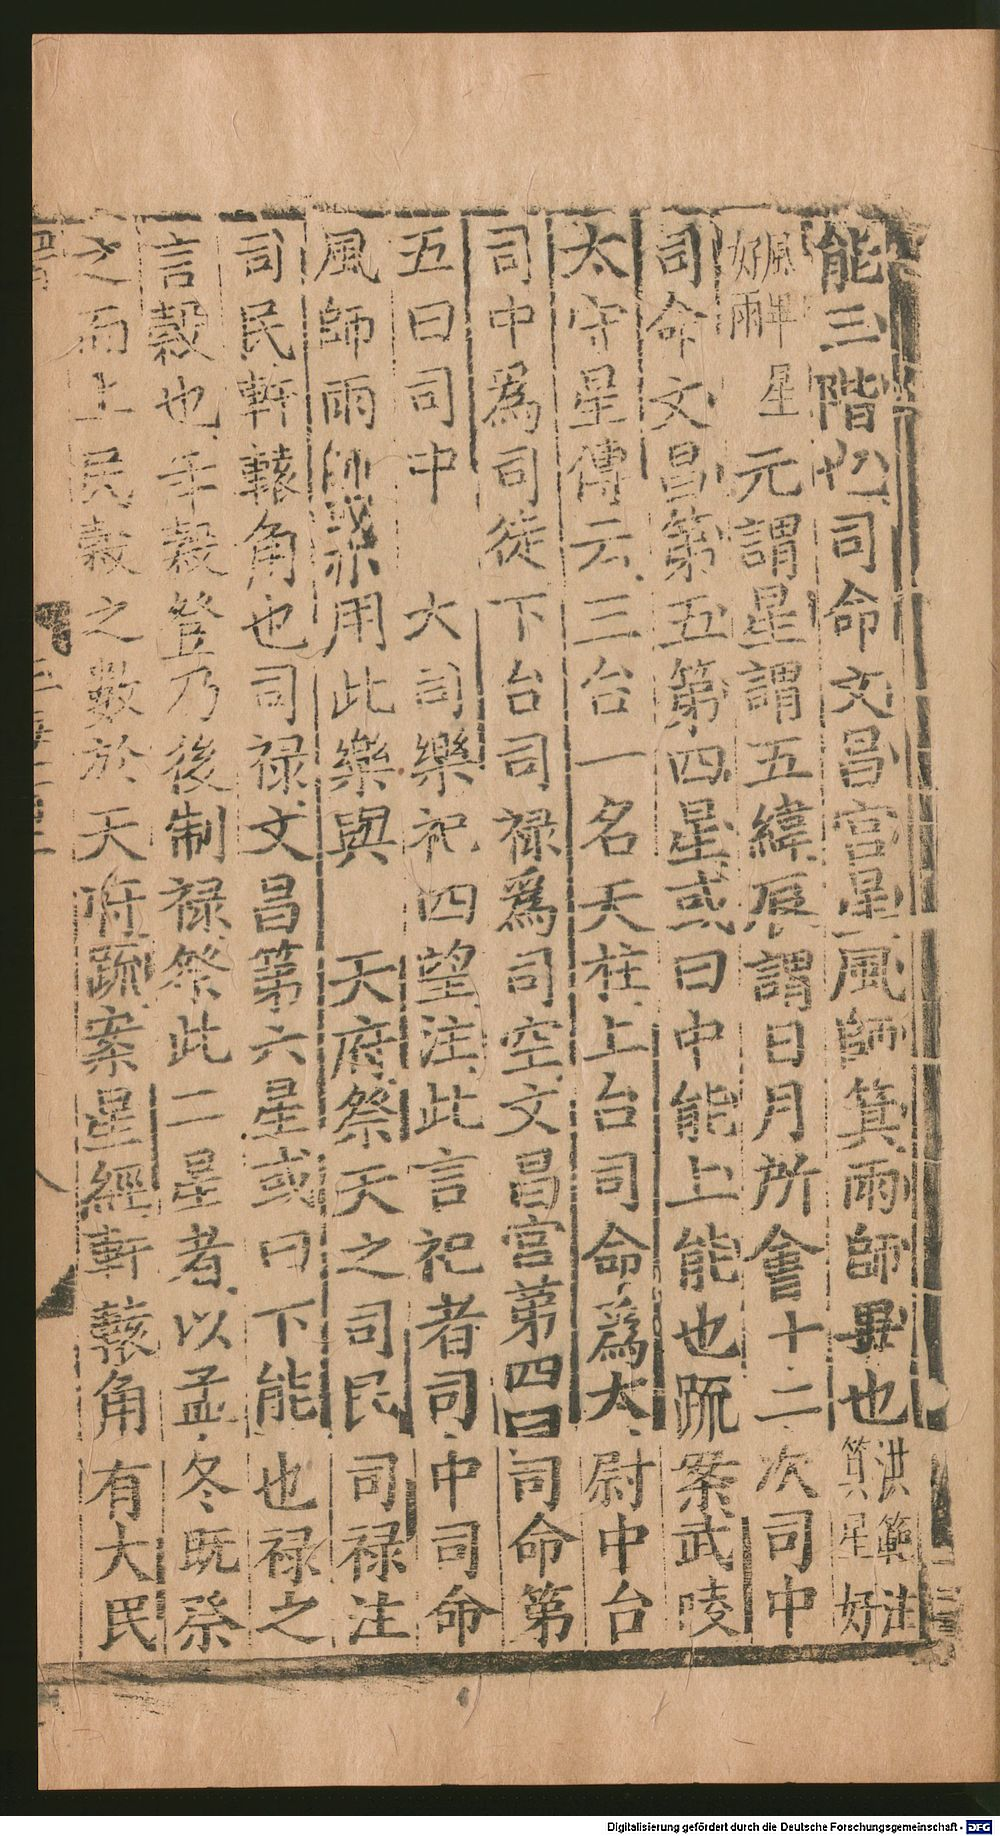 能三階也司命文昌宮星風師箕雨師畢也洪範注箕星好
風畢星好雨元謂星謂五緯辰謂日月所會十二次司中
司命文昌第五第四星或曰中能上能也疏案武陵
太守星傳云三台一名天柱上台司命爲太尉中台
司中爲司徒下台司禄爲司空文昌宮第四曰司命第
五曰司中 大司樂祀四望注此言祀者司中司命
風師雨師或亦用此樂與 天府祭天之司民司禄注
司民軒轅角也司禄文昌第六星或曰下能也禄之
言穀也年穀登乃後制禄祭此二星者以孟冬既祭
之而上民穀之數於天府疏案星經軒轅角有大民
Digitalisierung gefördert durch die Deutsche Forschungsgemeinschaft - DFG